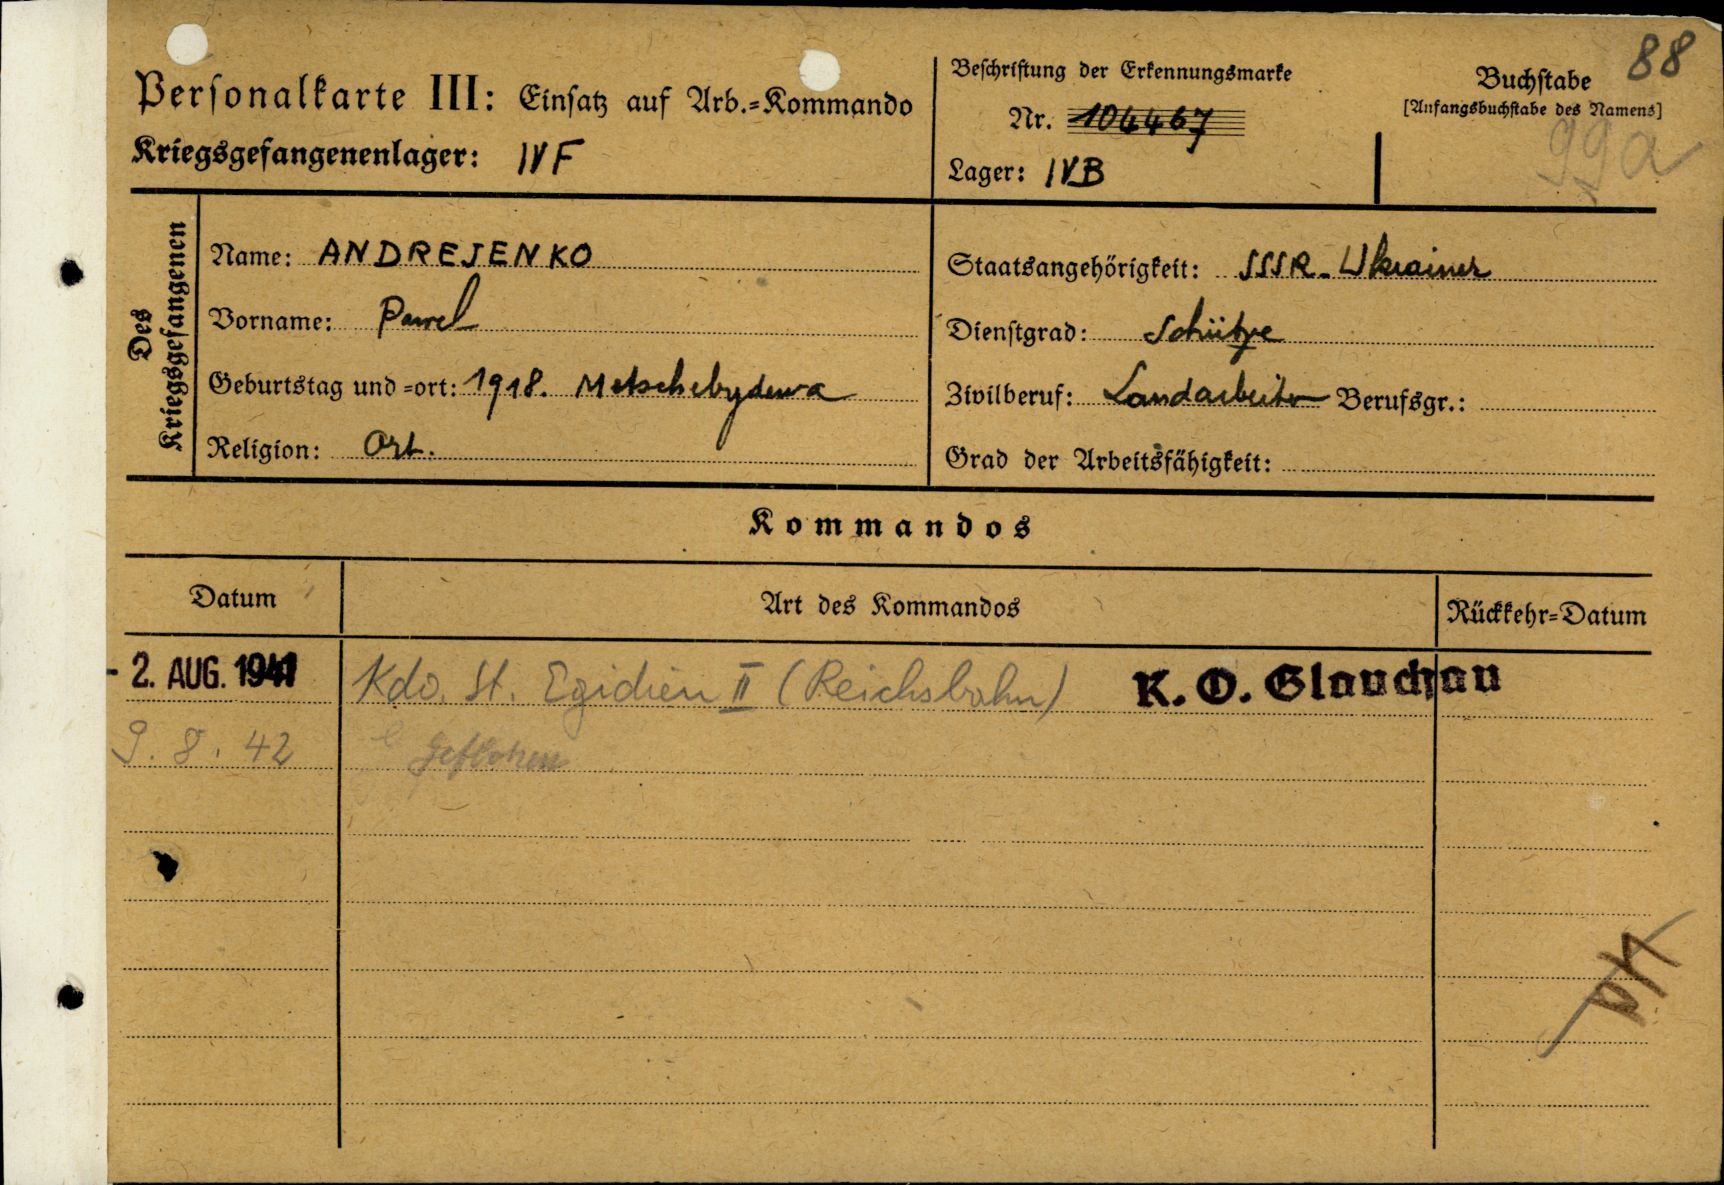 88
Personalkarte III: Einsatz auf Arb.=Kommando
Kriegsgefangenenlager: IVF
Beschriftung der Erkennungsmarke
Nr. 104467
Lager: IVB
Buchstabe
[Anfangsbuchstabe des Namens]
99a
Des Kriegsgefangenen
Name: ANDREJENKO
Vorname: Pawel
Geburtstag und =ort: 1918. Metschebydewa
Religion: Ort.
Staatsangehörigkeit: SSSR. Ukrainer
Dienstgrad: Schütze
Zivilberuf: Landarbeiter Berufsgr.:
Grad der Arbeitsfähigkeit:
Kommandos
Datum Art des Kommandos Rückkehr=Datum
- 2. AUG. 1941 Kdo. St. Egidien II (Reichsbahn) K. O. Glauchau
9. 8. 42 Geflohen